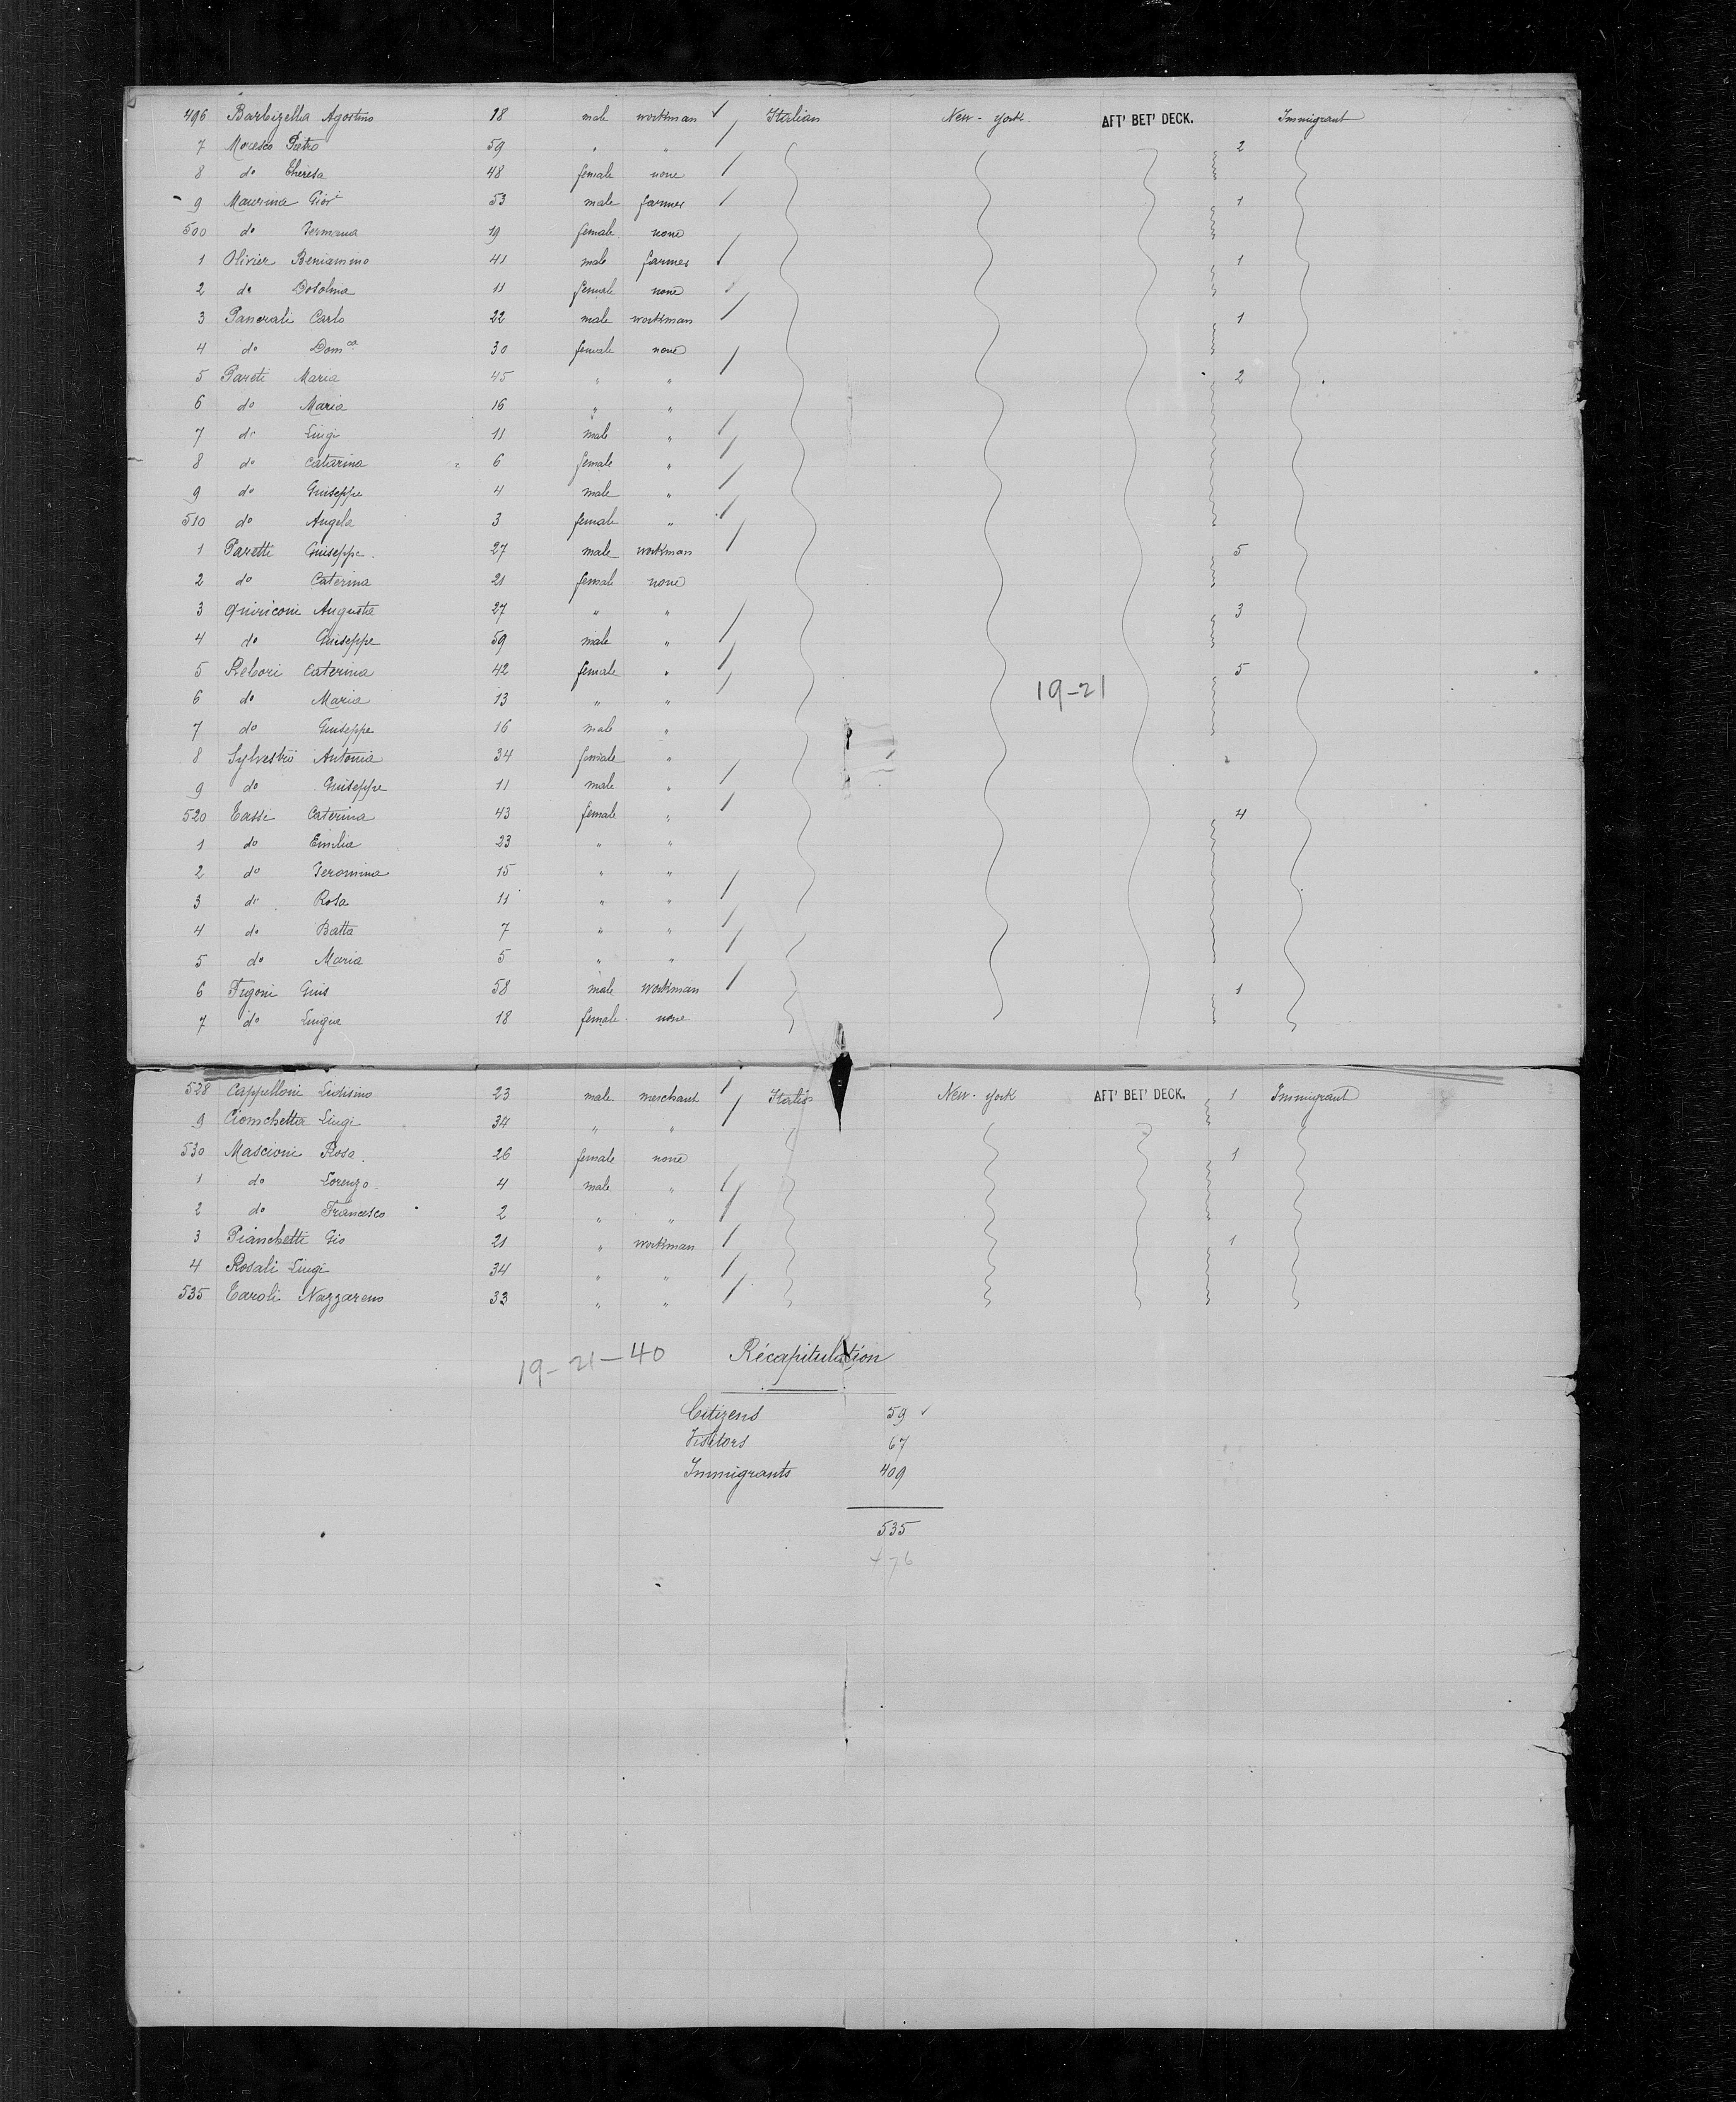 496 Barbizella Agostino 18 male workman Italian New-York AFT' BET' DECK. Immigrant
7 Moresco Pietro 59 " " 2
8 do Theresa 48 female none
9 Maurina Giov 53 male farmer 1
500 do Germana 19 female none
1 Olivier Beniamino 41 male farmer 1
2 do Dosolma 11 female none
3 Pancrali Carlo 22 male workman 1
4 do Domca 30 female none
5 Pareti Maria 45 " " 2
6 do Maria 16 " "
7 do Luigi 11 male "
8 do Catarina 6 female "
9 do Guiseppe 4 male "
510 do Angela 3 female "
1 Paretti Guiseppe 27 male workman 5
2 do Caterina 21 female none
3 Quiriconi Augusta 27 " " 3
4 do Guiseppe 59 male "
5 Rebori Caterina 42 female " 5
6 do Maria 13 " " 19-21
7 do Guiseppe 16 male "
8 Sylvestri Antonia 34 female "
9 do Guiseppe 11 male "
520 Tassi Caterina 43 female " 4
1 do Emilia 23 " "
2 do Geromina 15 " "
3 do Rosa 11 " "
4 do Batta 7 " "
5 do Maria 5 " "
6 Figoni Guis 58 male workman 1
7 do Luigia 18 female none
528 Cappelloni Lidisino 23 male merchant New-York AFT' BET' DECK. 1 Immigrant
9 Cionchetta Luigi 34 " "
530 Mascioni Rosa 26 female none 1
1 do Lorenzo 4 male "
2 do Francesco 2 " "
3 Pianchetti Gio 21 " workman 1
4 Rosali Luigi 34 " "
535 Taroli Nazzareno 33 " "
19-21-40 Récapitulation
Citizens 59
Visitors 67
Immigrants 409
535
476